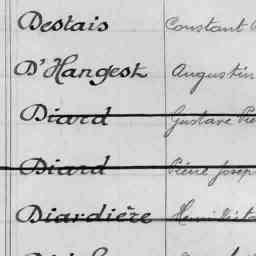 Destais Constant
D'Hangest Augustin
Diard Gustave Pie
Diard Pierre Josep
Diardière